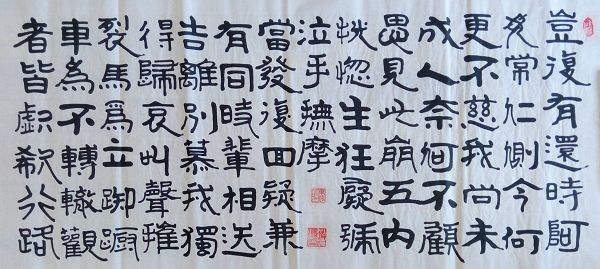 豈復有還時阿
母常仁惻今何
更不慈我尚未
成人奈何不顧
思見此崩五內
恍惚生狂癡號
泣手撫摩
當發復回疑兼
有同時輩相送
告離別慕我獨
得歸哀叫聲摧
裂馬爲立踟躕
車為不轉轍觀
者皆歔欷行路